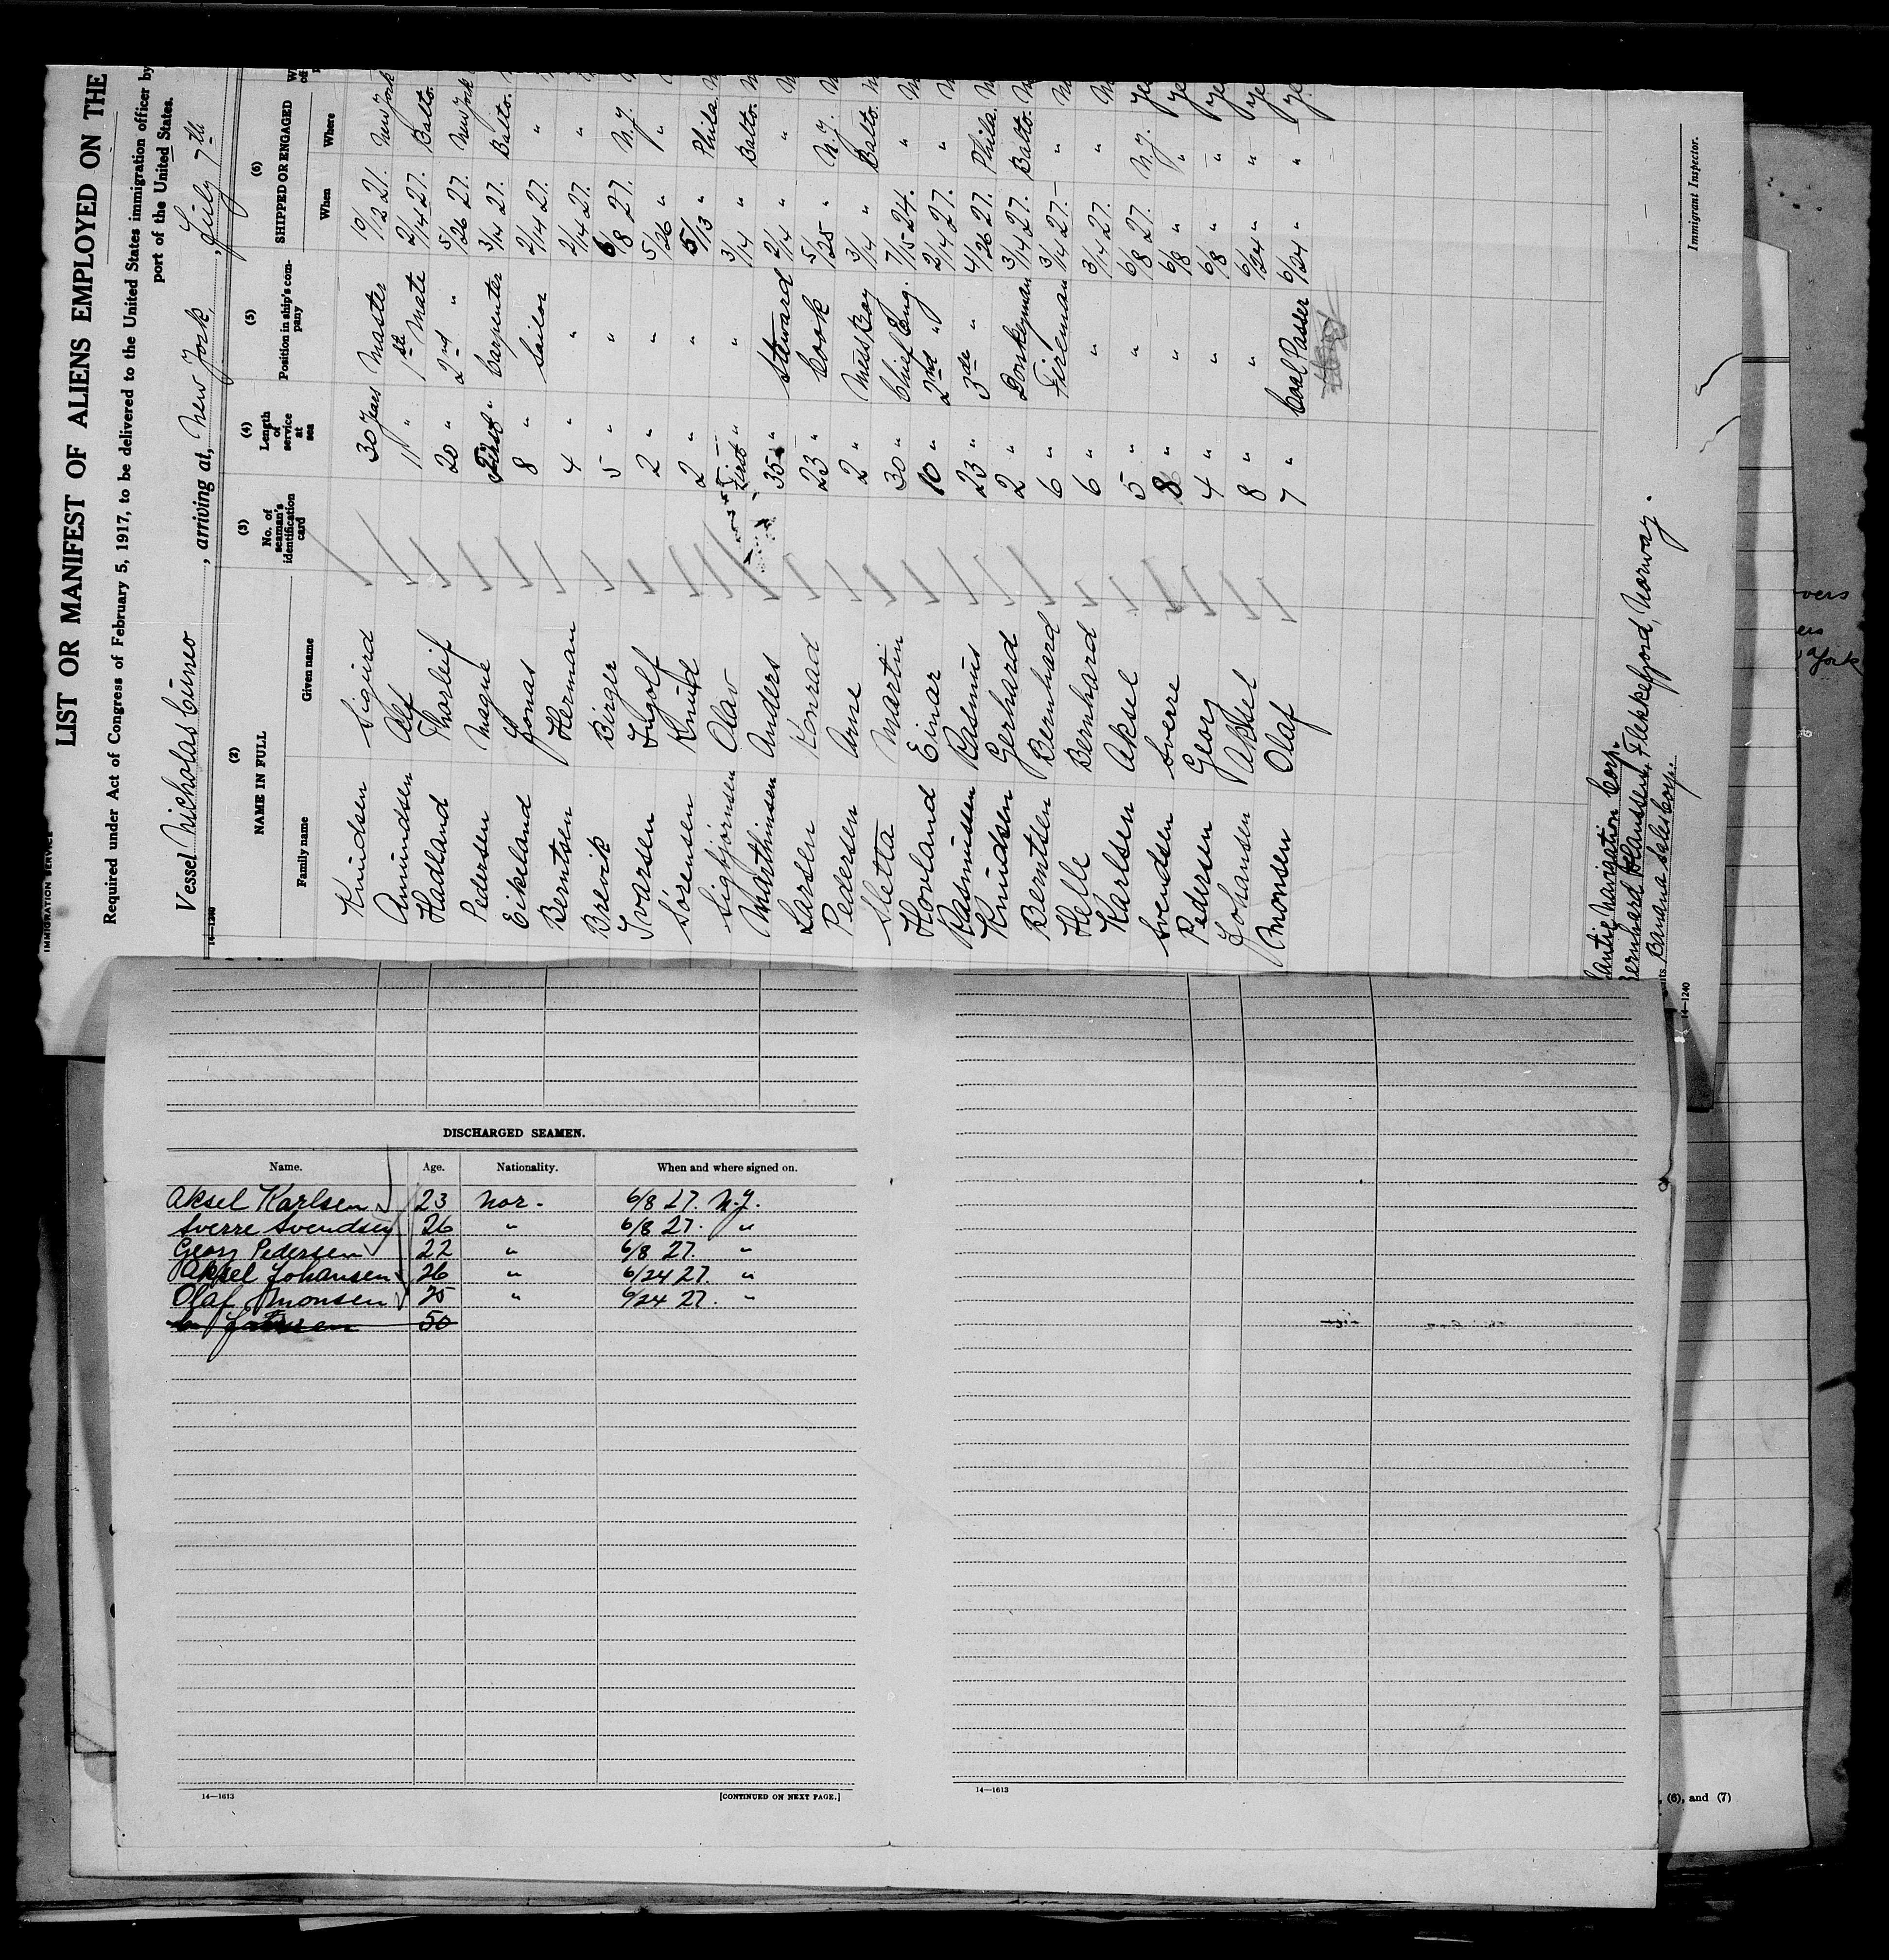 LIST OR MANIFEST OF ALIENS EMPLOYED ON THE
IMMIGRATION SERVICE
Required under Act of Congress of February 5, 1917, to be delivered to the United States immigration officer by
port of the United States.
Vessel Nicholas Cuneo, arriving at, New York, July 7th
14—1240
(2) (3) (4) (5) (6)
NAME IN FULL No. of seaman's identification card Length of service at sea Position in ship's company SHIPPED OR ENGAGED
Family name Given name When Where
Knudsen Sigurd 30 years Master 10/12 21. New York
Amundsen Alf 11 " 1st Mate 2/14 27. Balto.
Hadland Tharleif 20 " 2nd " 5/26 27. New York
Pedersen Magne First " Carpenter 3/14 27. Balto.
Eikeland Jonas 8 " Sailor 2/14 27. "
Berntsen Herman 4 " " 2/14 27. "
Brevik Birger 5 " " 6/8 27. N.Y.
Ivarsen Ingolf 2 " " 5/26 " "
Sørensen Knud 2 " " 5/13 " Phila.
Sigbjørnsen Olav First " " 3/14 " Balto.
Marthinsen Anders 35 " Steward 2/14 " "
Larsen Konrad 23 " Cook 5/25 " N.Y.
Pedersen Arne 2 " Mess Boy 3/14 " Balto.
Sletta Martin 30 " Chief Eng. 7/15 24. "
Hovland Einar 10 " 2nd " 2/14 27. "
Rasmussen Rasmus 23 " 3de " 4/26 27. Phila.
Knudsen Gerhard 2 " Donkeyman 3/14 27. Balto.
Berntsen Bernhard 6 " Fireman 3/14 27. "
Helle Bernhard 6 " " 3/14 27. "
Karlsen Aksel 5 " " 6/8 27. N.Y.
Svendsen Sverre 8 " " 6/8 " "
Pedersen Georg 4 " " 6/8 " "
Johansen Aksel 8 " " 6/24 " "
Monsen Olaf 7 " Coal Passer 6/24 " "
lantic Navigation Corp.
Bernhard Klaussen, Flekkefjord, Norway.
Banana Sales Corp.
Immigrant Inspector.
14—1240
vers
ers
York
DISCHARGED SEAMEN.
Name. Age. Nationality. When and where signed on.
Aksel Karlsen 23 Nor. 6/8 27. N.Y.
Sverre Svendsen 26 " 6/8 27. "
Georg Pedersen 22 " 6/8 27. "
Aksel Johansen 26 " 6/24 27. "
Olaf Monsen 25 " 6/24 27. "
50
14—1613 [CONTINUED ON NEXT PAGE.]
14—1613
, (6), and (7)